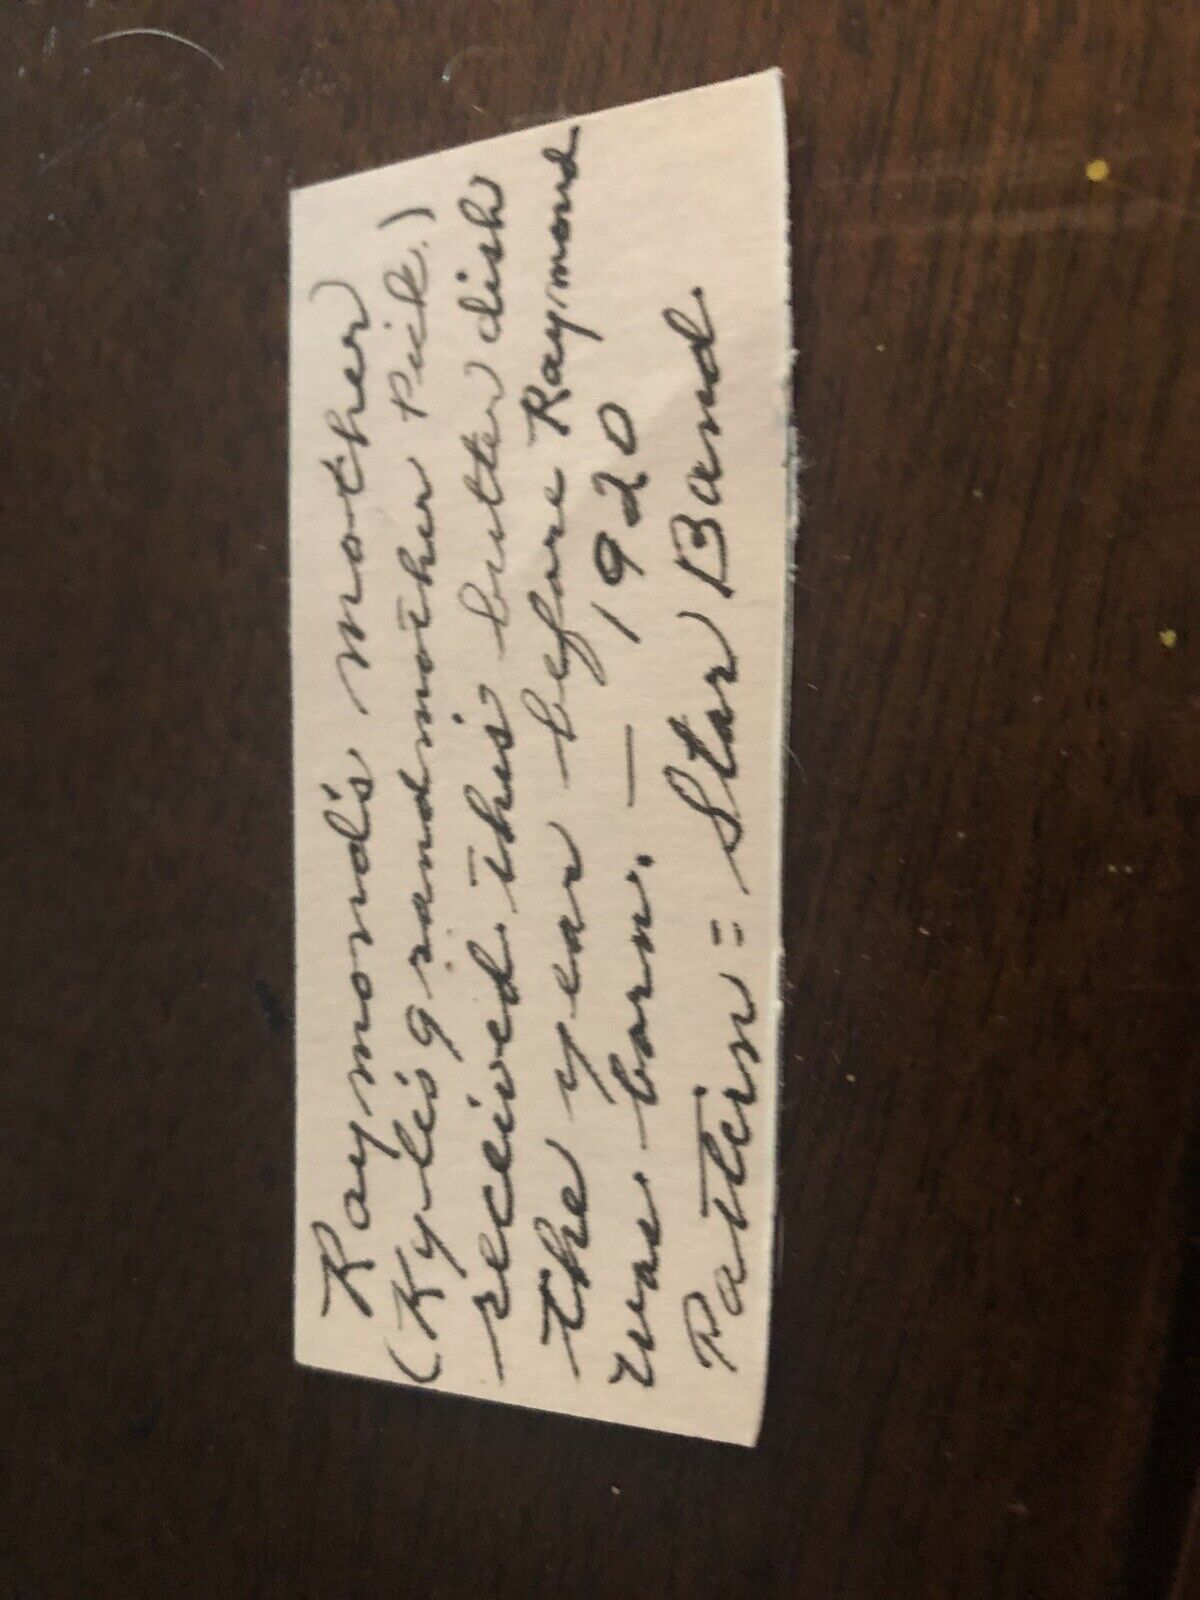 Raymond's mother
(Kyle's grandmother Pick.)
received this butter dish
the year before Raymond
was born. — 1920
Pattern = Star Band.